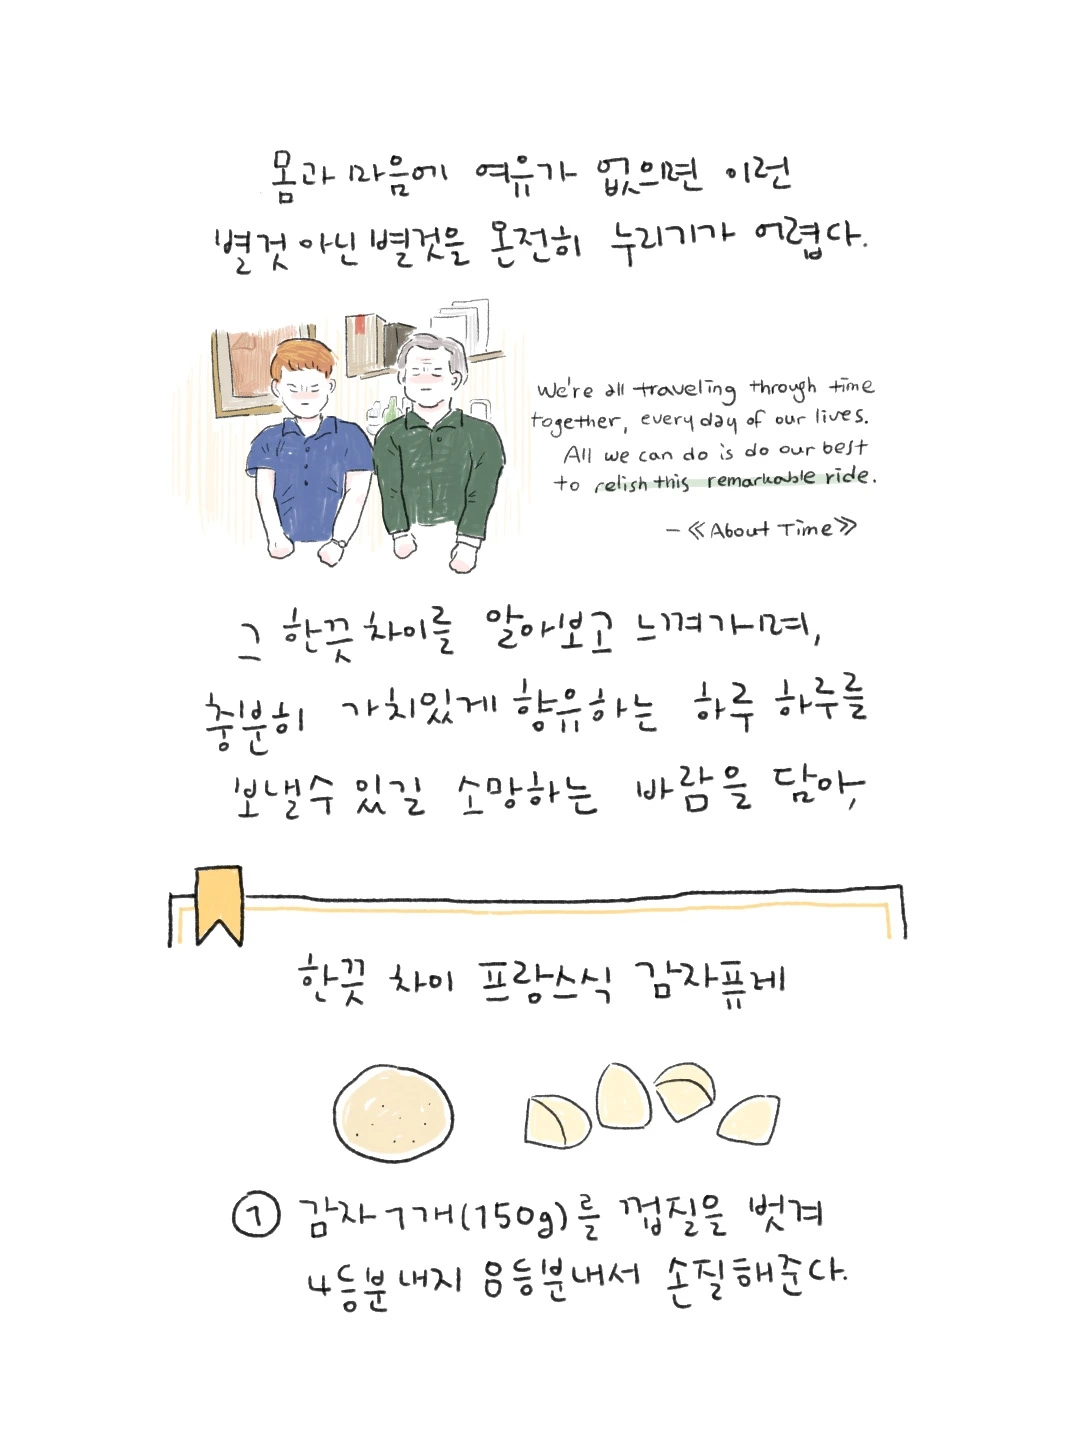 몸과 마음에 여유가 없으면 이런
별것 아닌 별것을 온전히 누리기가 어렵다.
We're all traveling through time
together, every day of our lives.
All we can do is do our best
to relish this remarkable ride.
-《About Time》
그 한끗 차이를 알아보고 느껴가며,
충분히 가치있게 향유하는 하루 하루를
보낼 수 있길 소망하는 바람을 담아,
한끗 차이 프랑스식 감자퓨레
① 감자 1개(150g)를 껍질을 벗겨
4등분 내지 8등분내서 손질해준다.